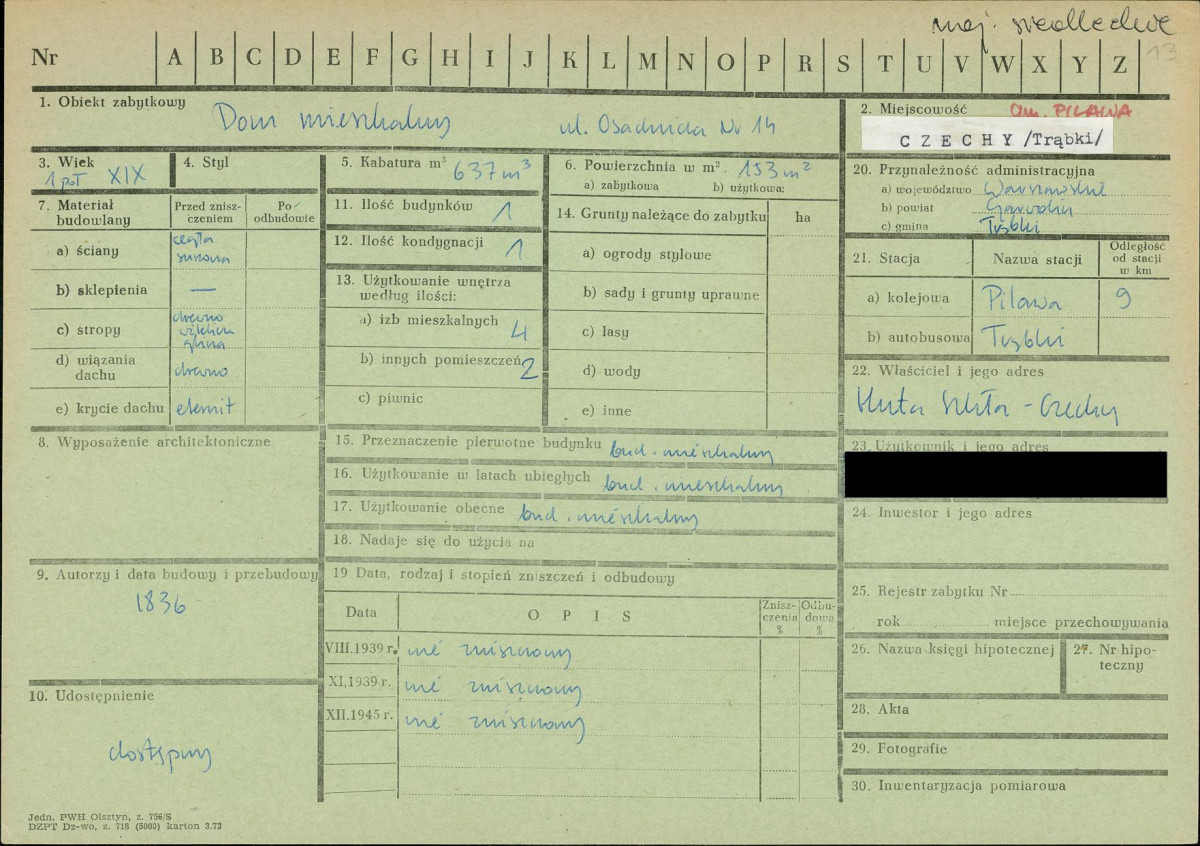 woj. siedleckie
13
Nr A B C D E F G H I J K L M N O P R S T U V W X Y Z
1. Obiekt zabytkowy
Dom mieszkalny ul. Osadnicza Nr 14
2. Miejscowość gm. PILAWA
CZECHY /Trąbki/
3. Wiek
1 poł XIX
4. Styl
5. Kabatura m³ 637 m³
6. Powierzchnia w m². 153 m²
a) zabytkowa b) użytkowa:
7. Materiał budowlany
Przed znisz-
czeniem
Po
odbudowie
a) ściany
cegła
surowa
b) sklepienia —
c) stropy
drewno
glina
d) wiązania
dachu
drewno
e) krycie dachu eternit
8. Wyposażenie architektoniczne
9. Autorzy i data budowy i przebudowy
1836
10. Udostępnienie
dostępny
11. Ilość budynków 1
12. Ilość kondygnacji 1
13. Użytkowanie wnętrza
według ilości:
a) izb mieszkalnych 4
b) innych pomieszczeń 2
c) piwnic
14. Grunty należące do zabytku ha
a) ogrody stylowe
b) sady i grunty uprawne
c) lasy
d) wody
e) inne
15. Przeznaczenie pierwotne budynku bud. mieszkalny
16. Użytkowanie w latach ubiegłych bud. mieszkalny
17. Użytkowanie obecne bud. mieszkalny
18. Nadaje się do użycia na
19 Data, rodzaj i stopień zniszczeń i odbudowy
Data O P I S
Znisz-
czenia
%
Odbu-
dowa
%
VIII.1939 r. nie zniszczony
XI,1939 r. nie zniszczony
XII.1945 r. nie zniszczony
20. Przynależność administracyjna
a) województwo Warszawskie
b) powiat Garwolin
c) gmina Trąbki
21. Stacja Nazwa stacji
Odległość
od stacji
w km
a) kolejowa Pilawa 9
b) autobusowa Trąbki
22. Właściciel i jego adres
Huta Szkła - Czechy
23. Użytkownik i jego adres
24. Inwestor i jego adres
25. Rejestr zabytku Nr
rok miejsce przechowywania
26. Nazwa księgi hipotecznej
27. Nr hipo-
teczny
28. Akta
29. Fotografie
30. Inwentaryzacja pomiarowa
Jedn. PWH Olsztyn, z. 756/S
DZPT Dz-wo, z. 718 (5000) karton 3.73